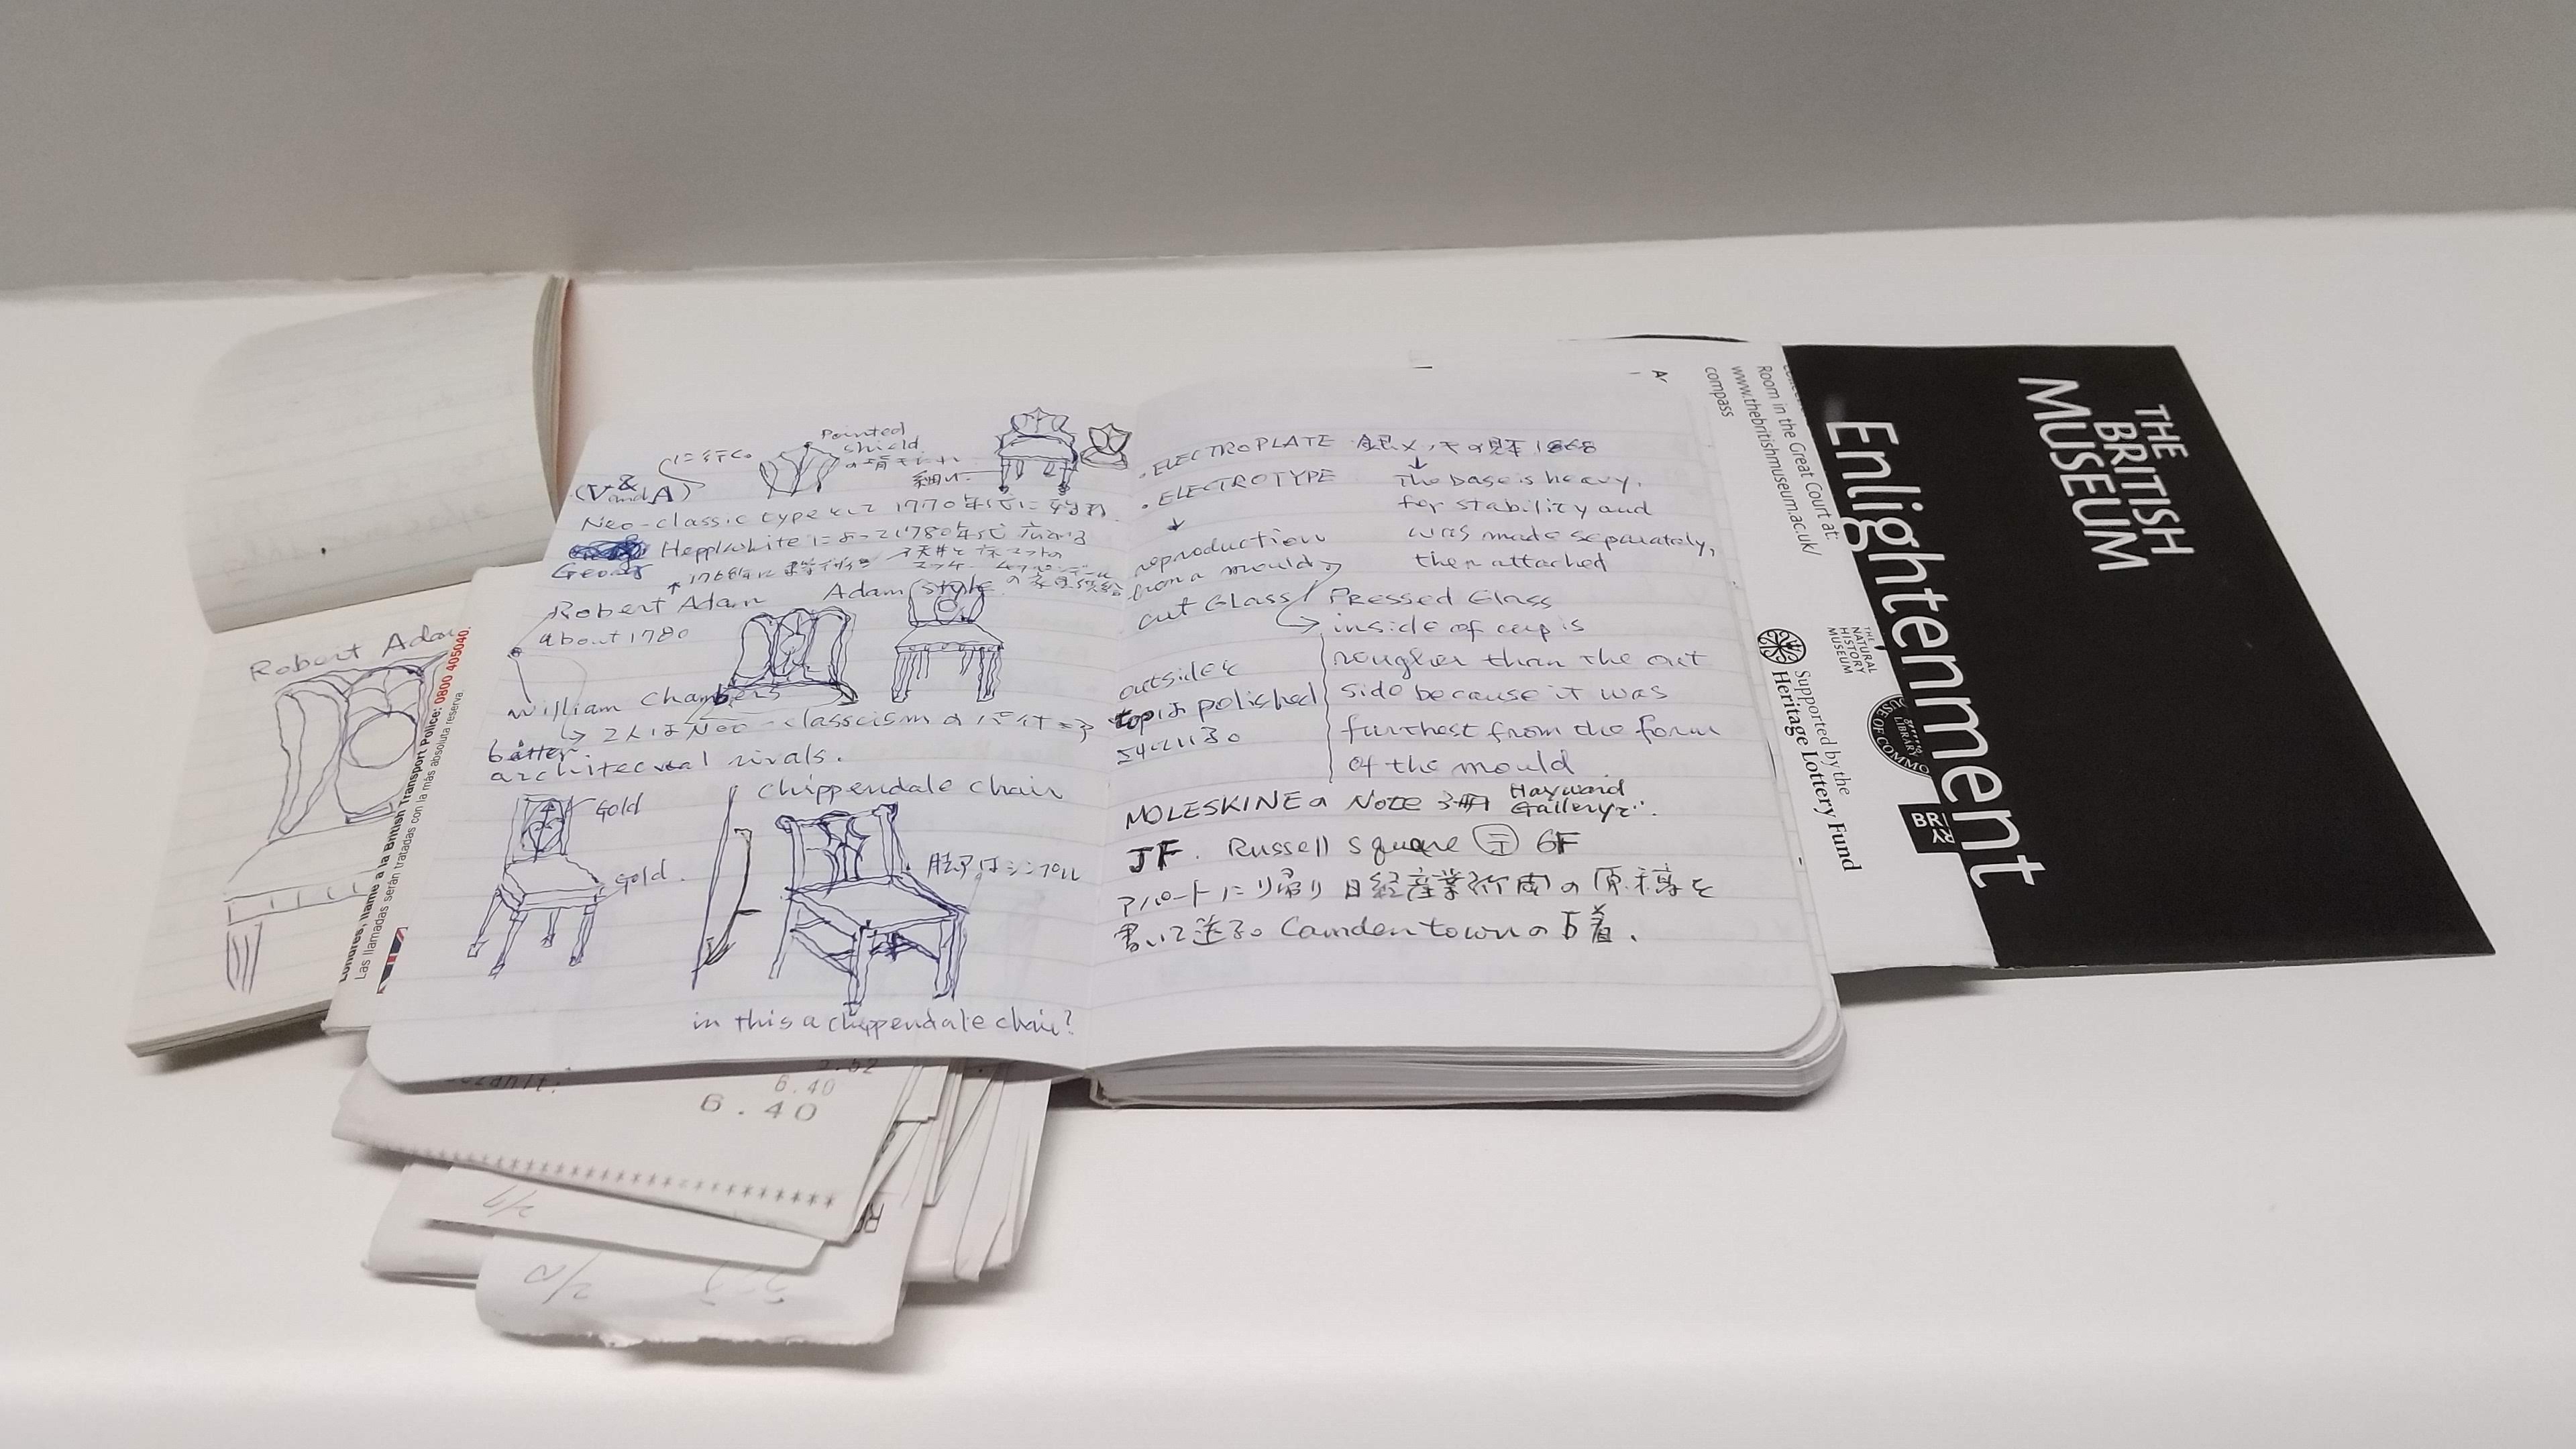 Robert Adam
Londres, llame a la British Transport Police: 0800 405040.
Las llamadas serán tratadas con la más absoluta reserva.
(V & A) に行く。
and
Pointed
shield
細い
Neo-classic type として 1770年代に
Hepplwhite によって1780年代
George
Robert Adam
Adam style
about 1780
William Chambers
2人は Neo-classcism の パイオニア
bitter
architectual rivals.
Gold
Gold.
Chippendale chair
脚はシンプル
in this a chippendale chair?
・ELECTROPLATE 銀メッキの 1868
・ELECTROTYPE
The base is heavy,
for stability and
was made separately,
then attached
reproduction
from a mould
cut Glass
Pressed Glass
inside of cup is
rougher than the out
side because it was
furthest from the form
of the mould
outside &
top は polished
されている
MOLESKINE の Note 3冊 Hayward
Gallery で.
JF. Russell Square 6F
アパートにり帰り 日経産業新聞の原稿を
書いて送る。Camden town の古着.
Room in the Great Court at:
www.thebritishmuseum.ac.uk/
compass
THE
NATURAL
HISTORY
MUSEUM
Supported by the
Heritage Lottery Fund
Enlightenment
THE
BRITISH
MUSEUM
6.40
6.40